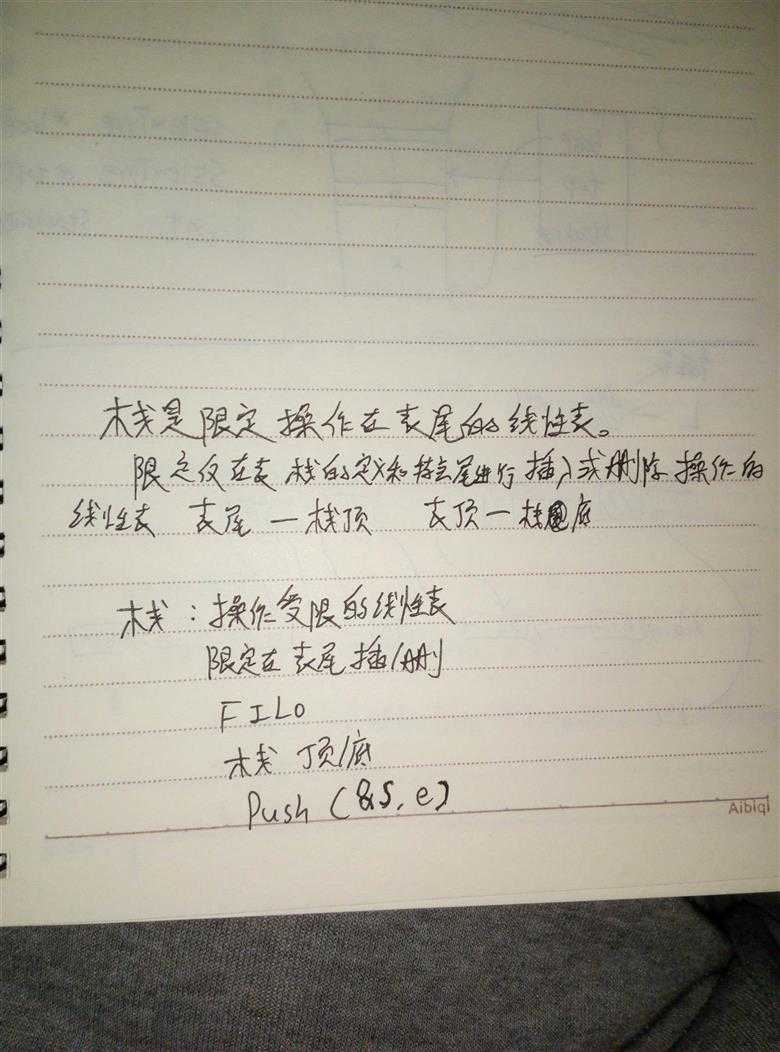 栈是限定操作在表尾的线性表。
限定仅在表 栈的定义和特点尾进行 插入或删除 操作的
线性表 表尾—栈顶 表顶—栈底
栈：操作受限的线性表
限定在表尾插/删
FILO
栈顶/底
Push (&S, e)
Aibiqi